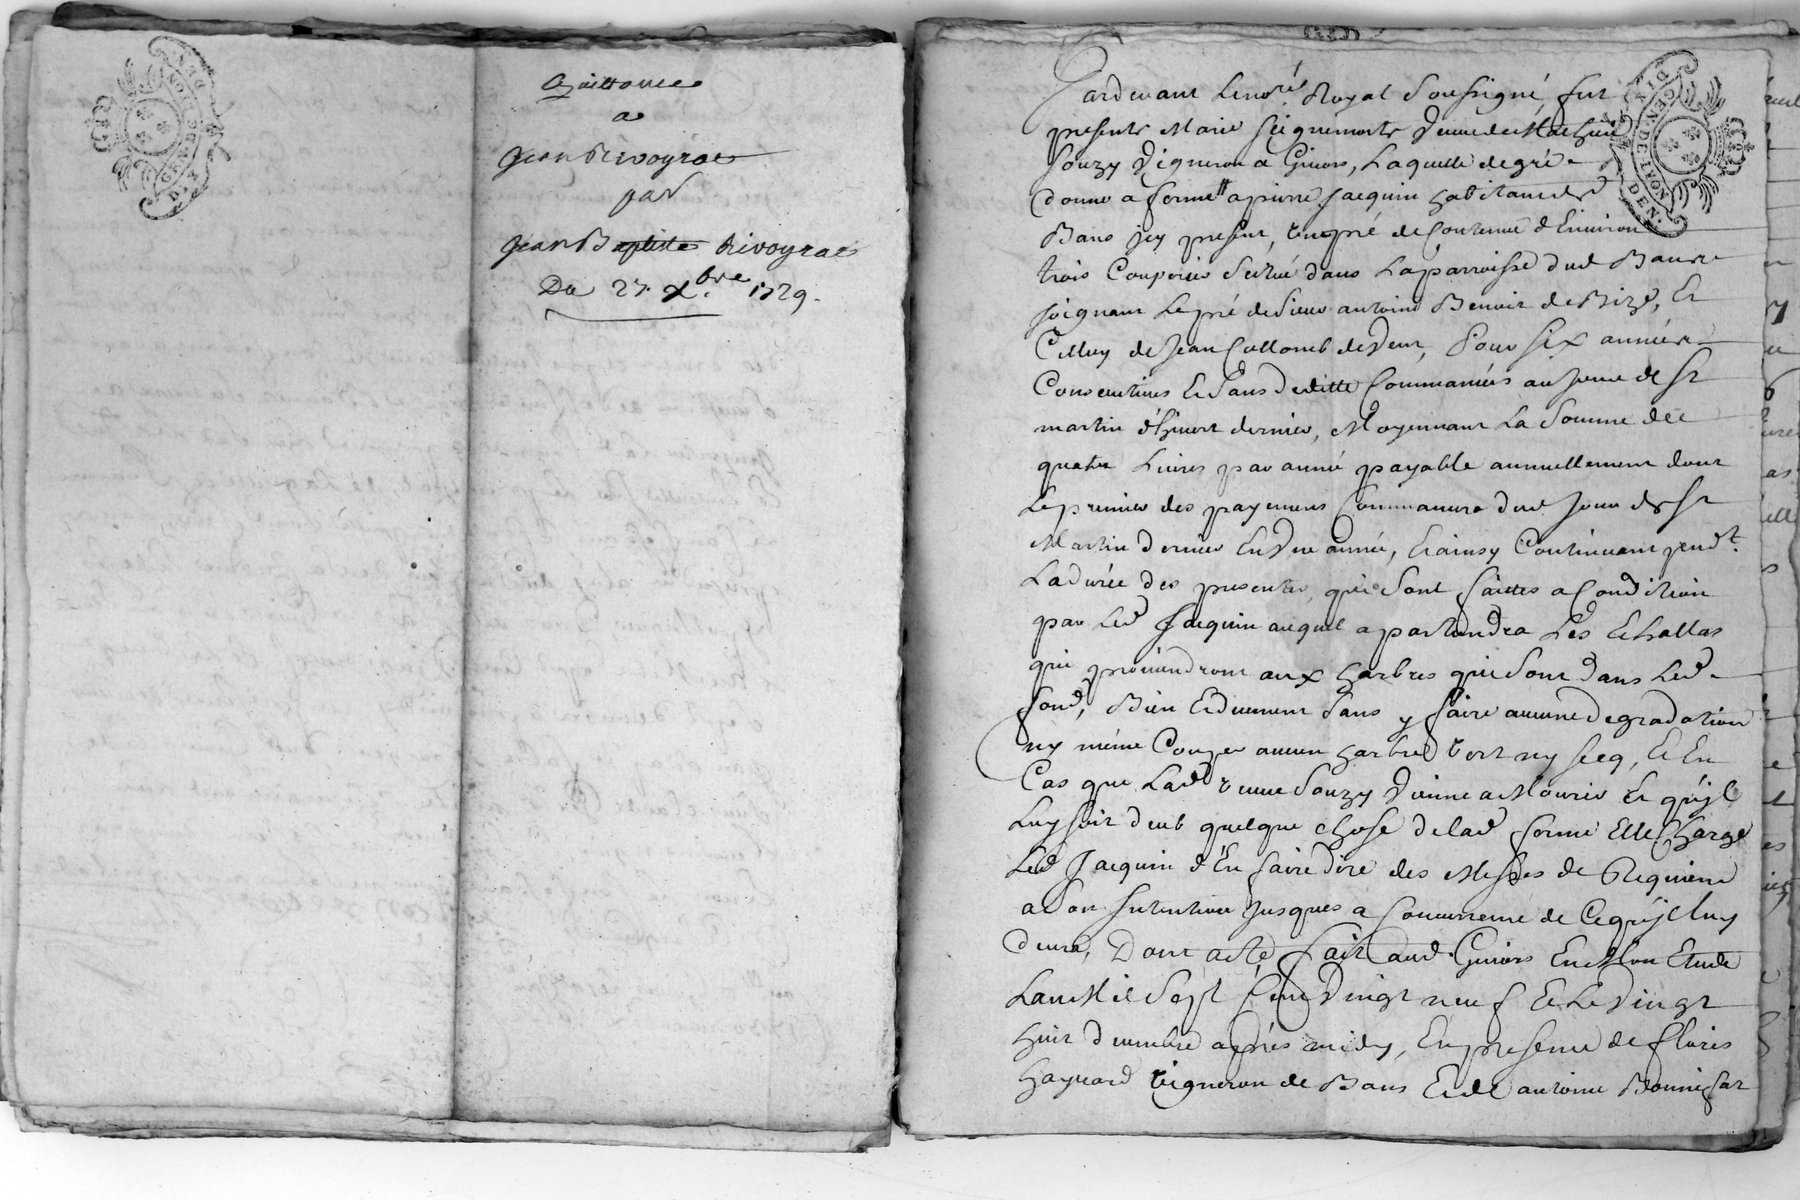 Quittance
a
Jean Rivoyrat
par
Jean Baptiste Rivoyrat
Du 27. Xbre 1729.
Pardevant Le no.re Royal Soussigné, fut
presente Marie veuve de Mathieu
Souzy Vigneron a Givors, Laquelle de gré
donne a ferme a pierre Jacquin habitant de
Bans jcy present, un pré de Contenue d'Environ
trois Couperies Scitué dans La parroisse dud. Bans
joignant Le pré de Sieur antoine Benoit de Bize, Et
Celluy de Jean Collomb de Vent, Pour six années
Consecutives Et Sans deditte Commancées au jour de St
martin d'hivert dernier, Moyennant La Somme de
quatre Livres par année payable annuellement dont
Le premier des payemens Commancera dud. jour de St
Martin dernier En Une année, Et ainsy Continuant pend.t
La durée des presentes, qui Sont faittes a Condition
par Led. Jacquin auquel apartiendra Les Echallas
qui proviendront aux harbres qui Sont dans Led.
fond, Bien Et duement Sans y faire aucune degradation
ny même Couper aucun harbre vert ny secq, Et En
Cas que Lad. veuve Souzy Vienne a Mourir Et qu'jl
Luy soit deub quelque chose de lad. ferme Elle Charge
Led. Jacquin d'En faire dire des Messes de Requiem
a Son Intention jusques a Concurrence de Ce qu'jl luy
devra, Dont acte fait aud. Givors En Mon Etude
L'an Mil Sept Cent Vingt neuf Et Le Vingt
huit decembre après midy, En presence de
vigneron de Bans Et de antoine
DIX DEN. GEN. DE LYON
DIX DEN. GEN. DE LYON